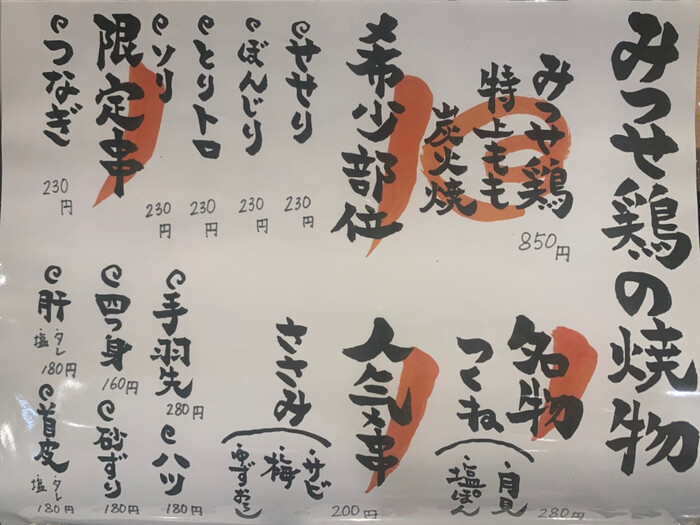 みつせ鶏の焼物
みつせ鶏
特上もも
炭火焼
850円
希少部位
せせり
230円
ぼんじり
230円
とりトロ
230円
ソリ
230円
限定串
つなぎ
230円
名物
つくね
・月見
・塩ぽん
280円
人気串
ささみ
・サビ
・梅
・ゆずおろし
200円
手羽先
280円
ハツ
180円
四つ身
160円
砂ずり
180円
肝
タレ
塩
180円
首皮
タレ
塩
180円